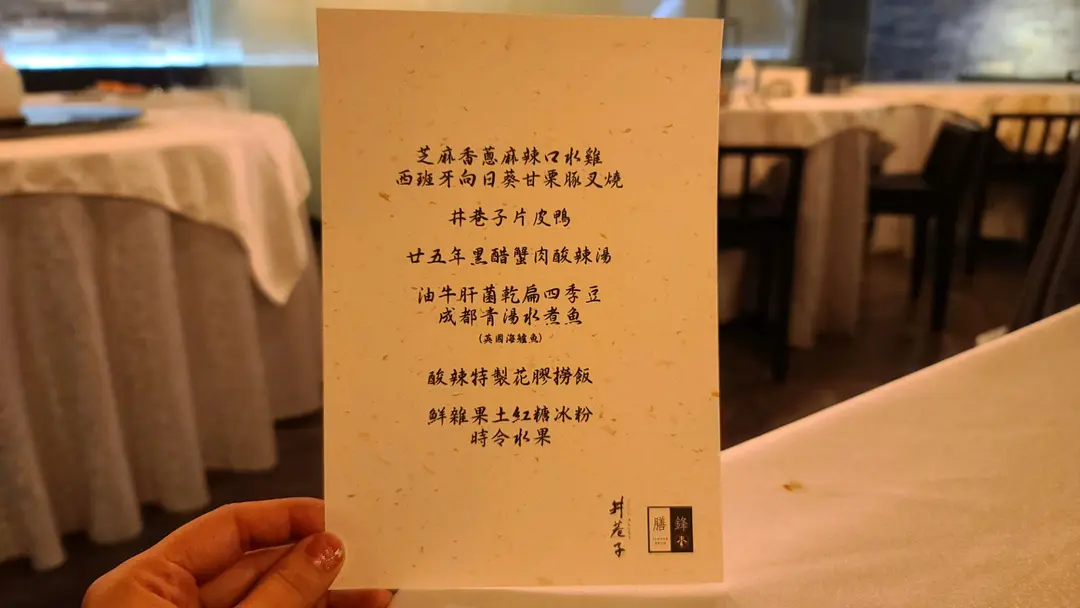 芝麻香蔥麻辣口水雞
西班牙向日葵甘栗豚叉燒
井巷子片皮鴨
廿五年黑醋蟹肉酸辣湯
油牛肝菌乾扁四季豆
成都青湯水煮魚
(英國海鱸魚)
酸辣特製花膠撈飯
鮮雜果土紅糖冰粉
時令水果
井巷子
膳
鋒